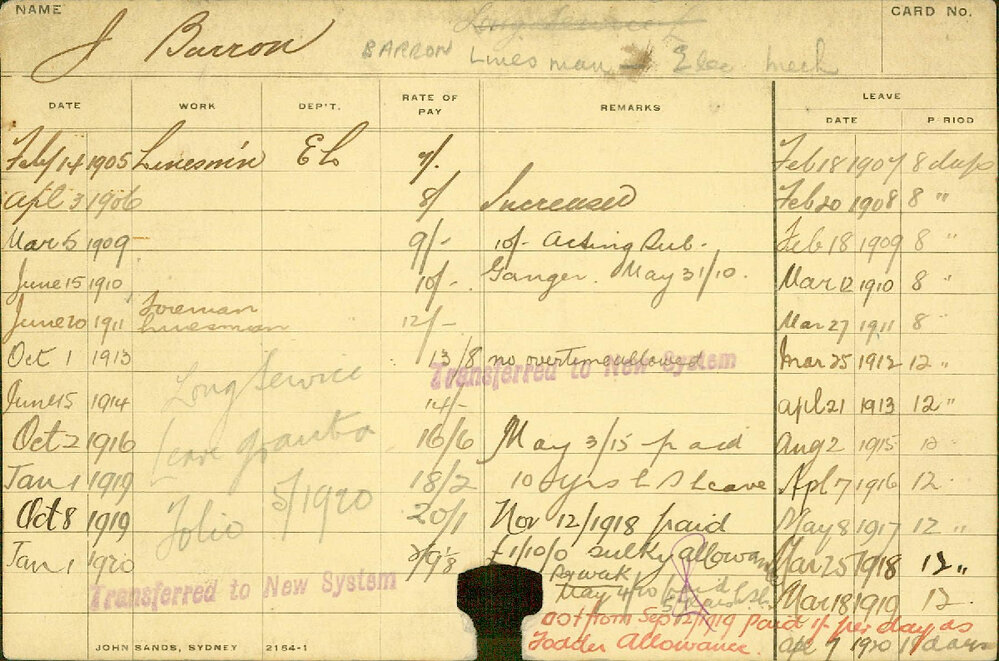 NAME
CARD No.
Long Service
J Barron
BARRON Linesman Elec mech
DATE WORK DEP'T. RATE OF PAY REMARKS LEAVE
DATE PERIOD
Feby 14 1905 Linesm'n EL 7/- Feb 18 1907 8 days
Apl 3 1906 8/ Increased Feb 20 1908 8 "
Mar 5 1909 9/- 10/- Acting Sub- Feb 18 1909 8 "
June 15 1910 10/- Ganger. May 31/10. Mar 12 1910 8 "
June 20 1911 Foreman Linesman 12/- Mar 27 1911 8 "
Oct 1 1913 13/8 no overtime allowed Mar 25 1912 12 "
Transferred to New System
Long Service
June 15 1914 14/- Apl 21 1913 12 "
Oct 2 1916 Leave granted 16/6 May 3/15 paid Aug 2 1915 12
Jan 1 1919 18/2 10 yrs L S Leave Apl 7 1916 12
Oct 8 1919 Folio 5/1920 20/1 Nov 12/1918 paid May 8 1917 12 "
Jan 1 1920 £1/10/0 sulky allowan Mar 25 1918 12 "
Transferred to New System
Per week
May 4/20 paid Mar 18 1919 12
5 years L.S.L.
from Sep 12/1919 paid 1/ per day as
Fodder Allowance. Apl 7 1920 days
JOHN SANDS, SYDNEY 2164-1